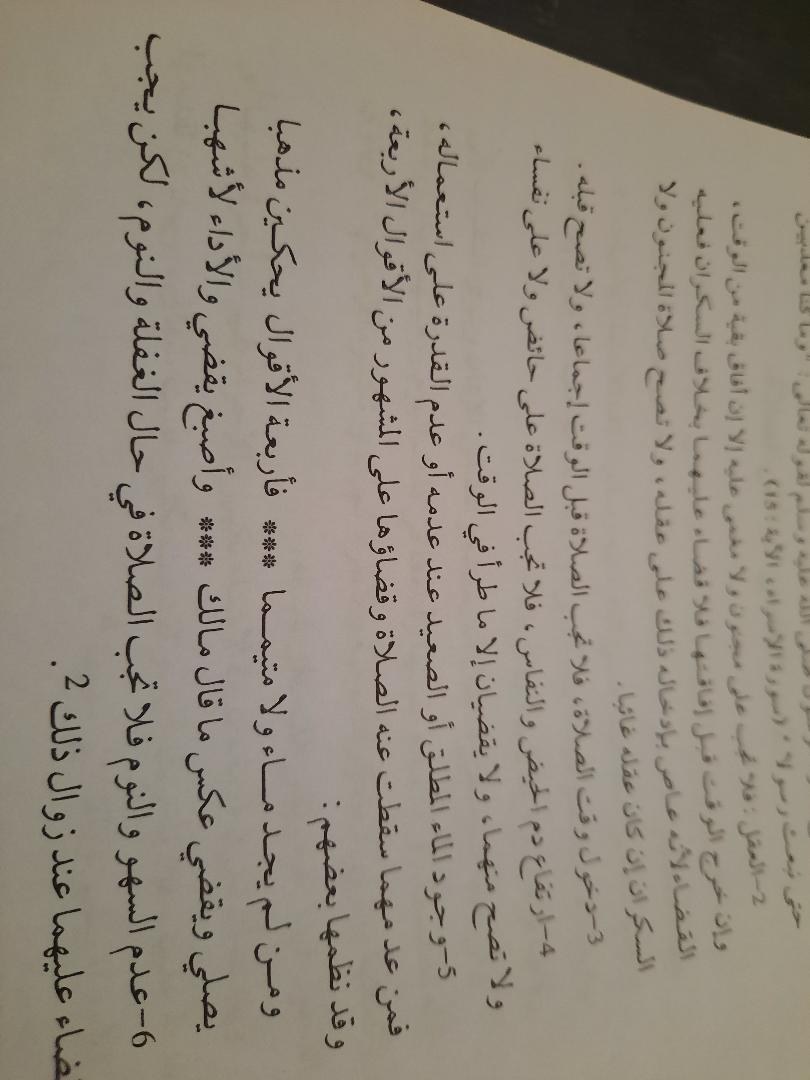 صلى الله عليه وسلم لقوله تعالى: "وما كنا معذبين
حتى نبعث رسولا" (سورة الإسراء، الآية: 15).
2-العقل: فلا تجب على مجنون ولا مغمى عليه إلا إن أفاق بقية من الوقت،
وإن خرج الوقت قبل إفاقتها فلا قضاء عليهما بخلاف السكران فعليه
القضاء لأنه عاص بإدخاله ذلك على عقله، ولا تصح صلاة المجنون ولا
السكران إن كان عقله غائبا.
3-دخول وقت الصلاة، فلا تجب الصلاة قبل الوقت إجماعا، ولا تصح قبله.
4-ارتفاع دم الحيض والنفاس، فلا تجب الصلاة على حائض ولا على نفساء
ولا تصح منهما، ولا يقضيان إلا ما طرأ في الوقت.
5-وجود الماء المطلق أو الصعيد عند عدمه أو عدم القدرة على استعماله،
فمن عدمهما سقطت عنه الصلاة وقضاؤها على المشهور من الأقوال الأربعة،
وقد نظمها بعضهم:
ومن لم يجد ماء ولا متيمما *** فأربعة الأقوال يحكين مذهبا
يصلي ويقضي عكس ما قال مالك *** وأصبغ يقضي والأداء لأشهبا
6-عدم السهو والنوم فلا تجب الصلاة في حال الغفلة والنوم، لكن يجب
القضاء عليهما عند زوال ذلك 2.